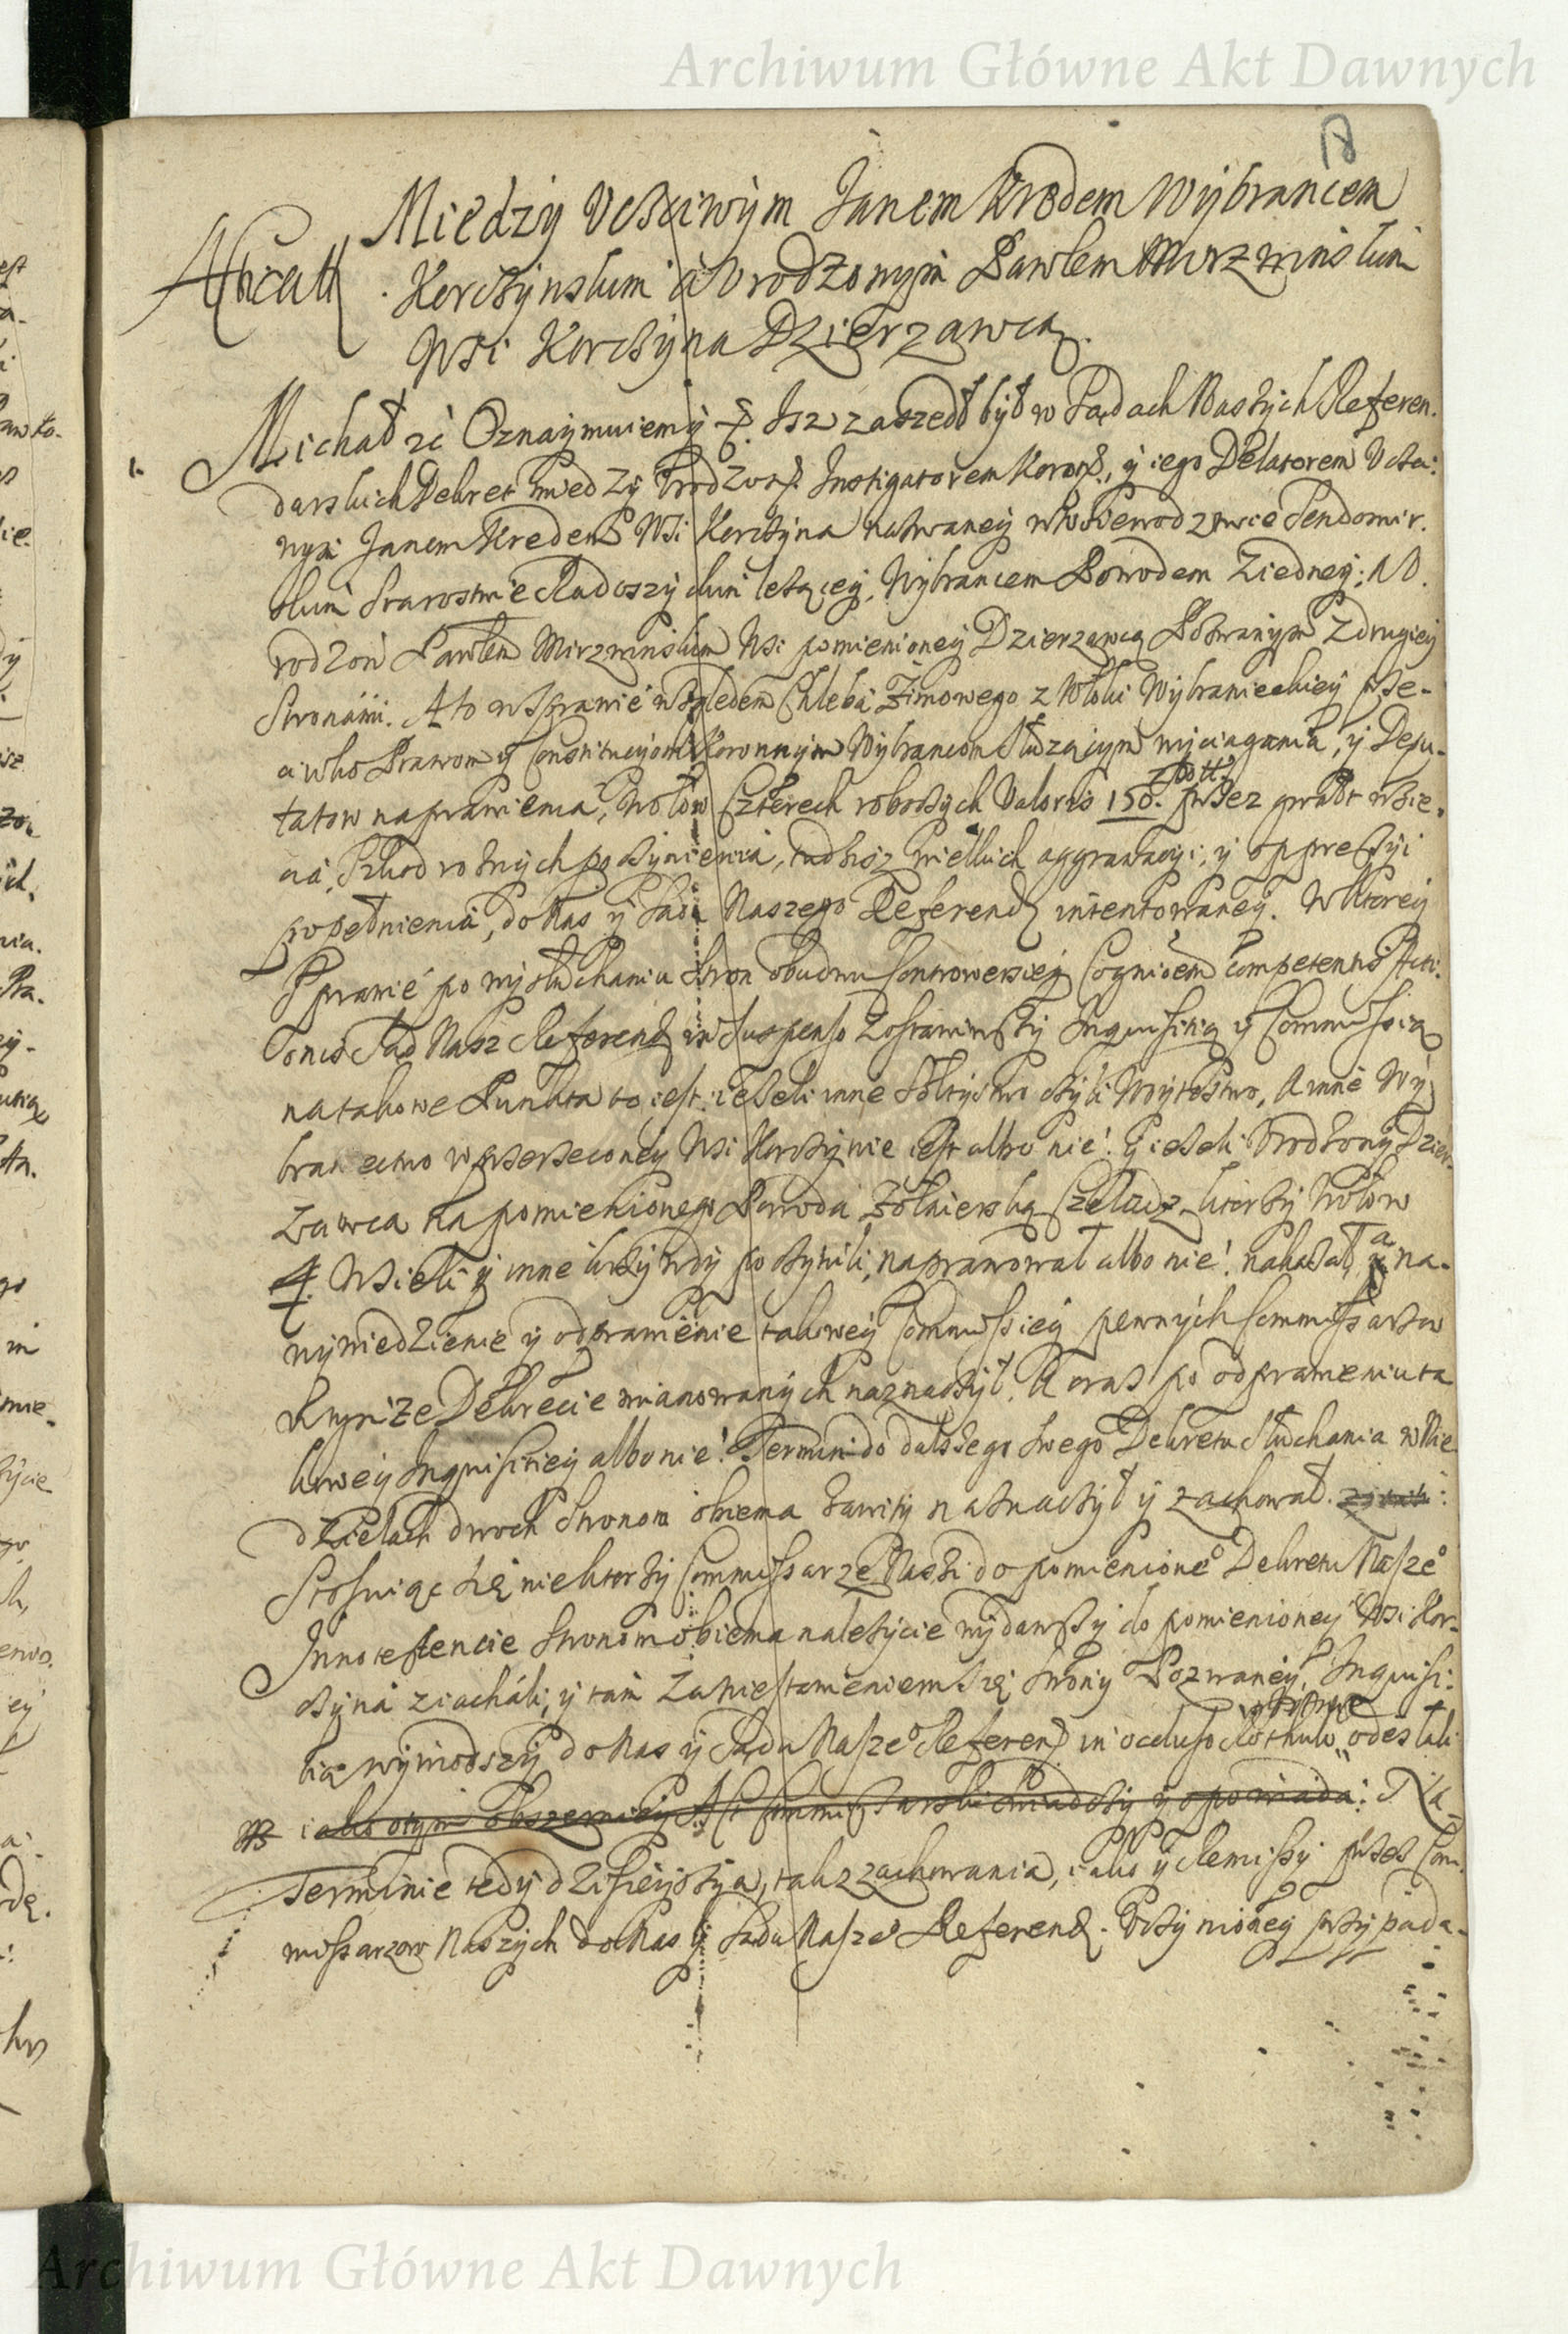 Archiwum Główne Akt Dawnych
18
Między Vcżciwym Janem Krodem Wybrańcem
Korcżynskim a Vrodzonym Pawłem Mirzwinskim
Wsi Korcżyna Dzierzawcą.
1. Michał zć Oznaymuiemy Isz zaszedł był w Sądach Naszych Referen.
darskich Dekret miedzy Vrodzon. Instigatorem Koron., y iego Delatorem Vcżci:
wym Janem Kredem Wsi Korcżyna nazwaney w Woiewodztwie Sendomir.
skim Starostwie Radoszyckim leżącey, Wybrancem Powodem Ziedney; A V.
rodzon Pawłem Mirzwinskim Wsi pomienioney Dzierzawcą Pozwanym Zdrugiey
Stronami. A to w Sprawie względem Chleba Zimowego z Włoki Wybranieckiey prze-
ciwko Prawom y Constitucyiom Koronnym Wybrancom służącym wyciągania, y Depu-
tatow naprawienia, Wołow Czterech roboczych Valoris 150. złott. przez gwałt wzię.
cia, Szkod rożnych poczynienia, tudzisz wielkich aggrawacyi, y oppressyi
popełnienia, do Nas y Sądu Naszego Referend intentowaney. W ktorey
Sprawie po wysłuchaniu stron obudwu Controwersiey Cognicem competentis Acti.
onis Sąd Nasz Referend in suspenso zostawiwszy Inquisitią y Commissią
na takowe Punkta to iest: ieżeli inne Sołtystwo czyli Woytostwo, A inne Wy
braniectwo w przerzeconey Wsi Korczynie iest albo nie! Y ieżeli Vrodzony Dzier.
zawca na pomienionego Powoda Żołnierską Czeladz, ktorzy Wołow
4. Wzieli y inne krzywdy poczynili, naprawował albo nie! nakazał, a na.
wywiedzienie y odprawienie takowey Commissiey pewnych Commissarzow
w tymże Dekrecie mianowanych naznaczył. A oraz po odprawieniu ta
kowey Inquisitiey albo nie! Termin do dalszego swego Dekretu słuchania w Nie
dzielach dwoch Stronom obiema zawity naznaczył y zachował.
Stosuiąc się niektorzy Commissarze Naszi do pomienione° Dekretu Nasze°
Innotescencie stronom obiema należycie wydawszy do pomienioney Wsi Kor-
czyna ziachali, y tam za niestawieniem się strony Pozwaney, Inquisi:
tią wywiodszy do Nas y Sądu Nasze° Referend in occluso Rothulo odesłali
iako otym obszerniey Act Commissarski swiadczy y opowiada: Na
Terminie tedy dzisieyszym, tak z zachowania, iako y Remissy przez Com.
missarzow Naszych do Nas y Sądu Nasze° Referend. Vczynioney przypada-
Archiwum Główne Akt Dawnych